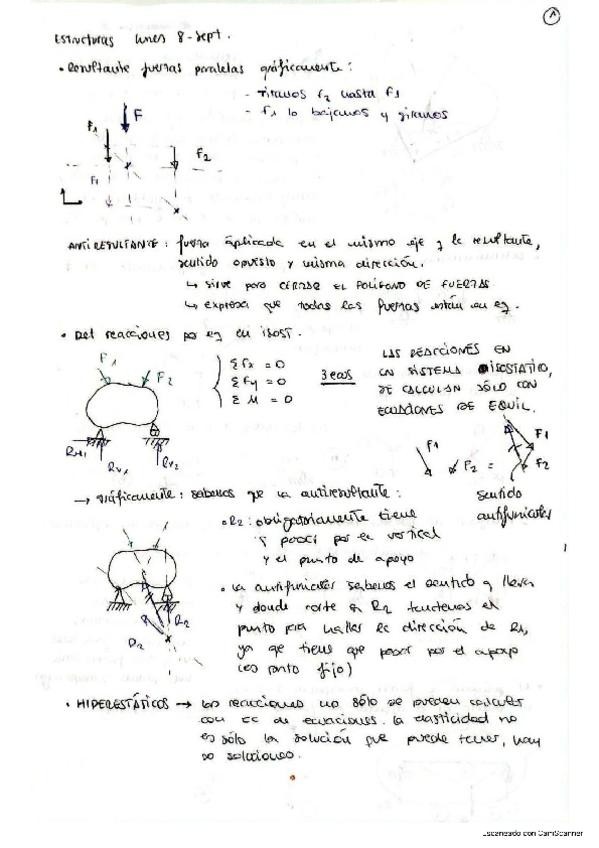 1
Estructuras lunes 8-sept.
• Resultante fuerzas paralelas gráficamente:
- Tiramos F2 hasta F1
- F1 lo bajamos y giramos
F
F1
F2
F1
ANTIRESULTANTE: fuerza aplicada en el mismo eje q la resultante,
sentido opuesto y misma dirección.
↳ sirve para CERRAR EL POLÍGONO DE FUERZAS
↳ expresa que todas las fuerzas están en eq.
• Det reacciones por eq en isost.
F1
F2
RH1
RV1
RV2
Σ Fx = 0
Σ Fy = 0
Σ M = 0
3 ecs
LAS REACCIONES EN
UN SISTEMA ISOSTATICO,
SE CALCULAN SÓLO CON
ECUACIONES DE EQUIL.
F1
F2 =
F1
F2
sentido
→ gráficamente: sabemos que la antiresultante:
• R2: obligatoriamente tiene
q pasar por la vertical
y el punto de apoyo
R2
• La sabemos el sentido q lleva
y donde corte a R2 tendremos el
punto para hallar la dirección de R1,
ya que tiene que pasar por el apoyo
(es punto fijo)
• HIPERESTÁTICOS → las reacciones no sólo se pueden calcular
con ec de ecuaciones. La elasticidad no
es sólo la solución que puede tener, hay
∞ soluciones.
Escaneado con CamScanner